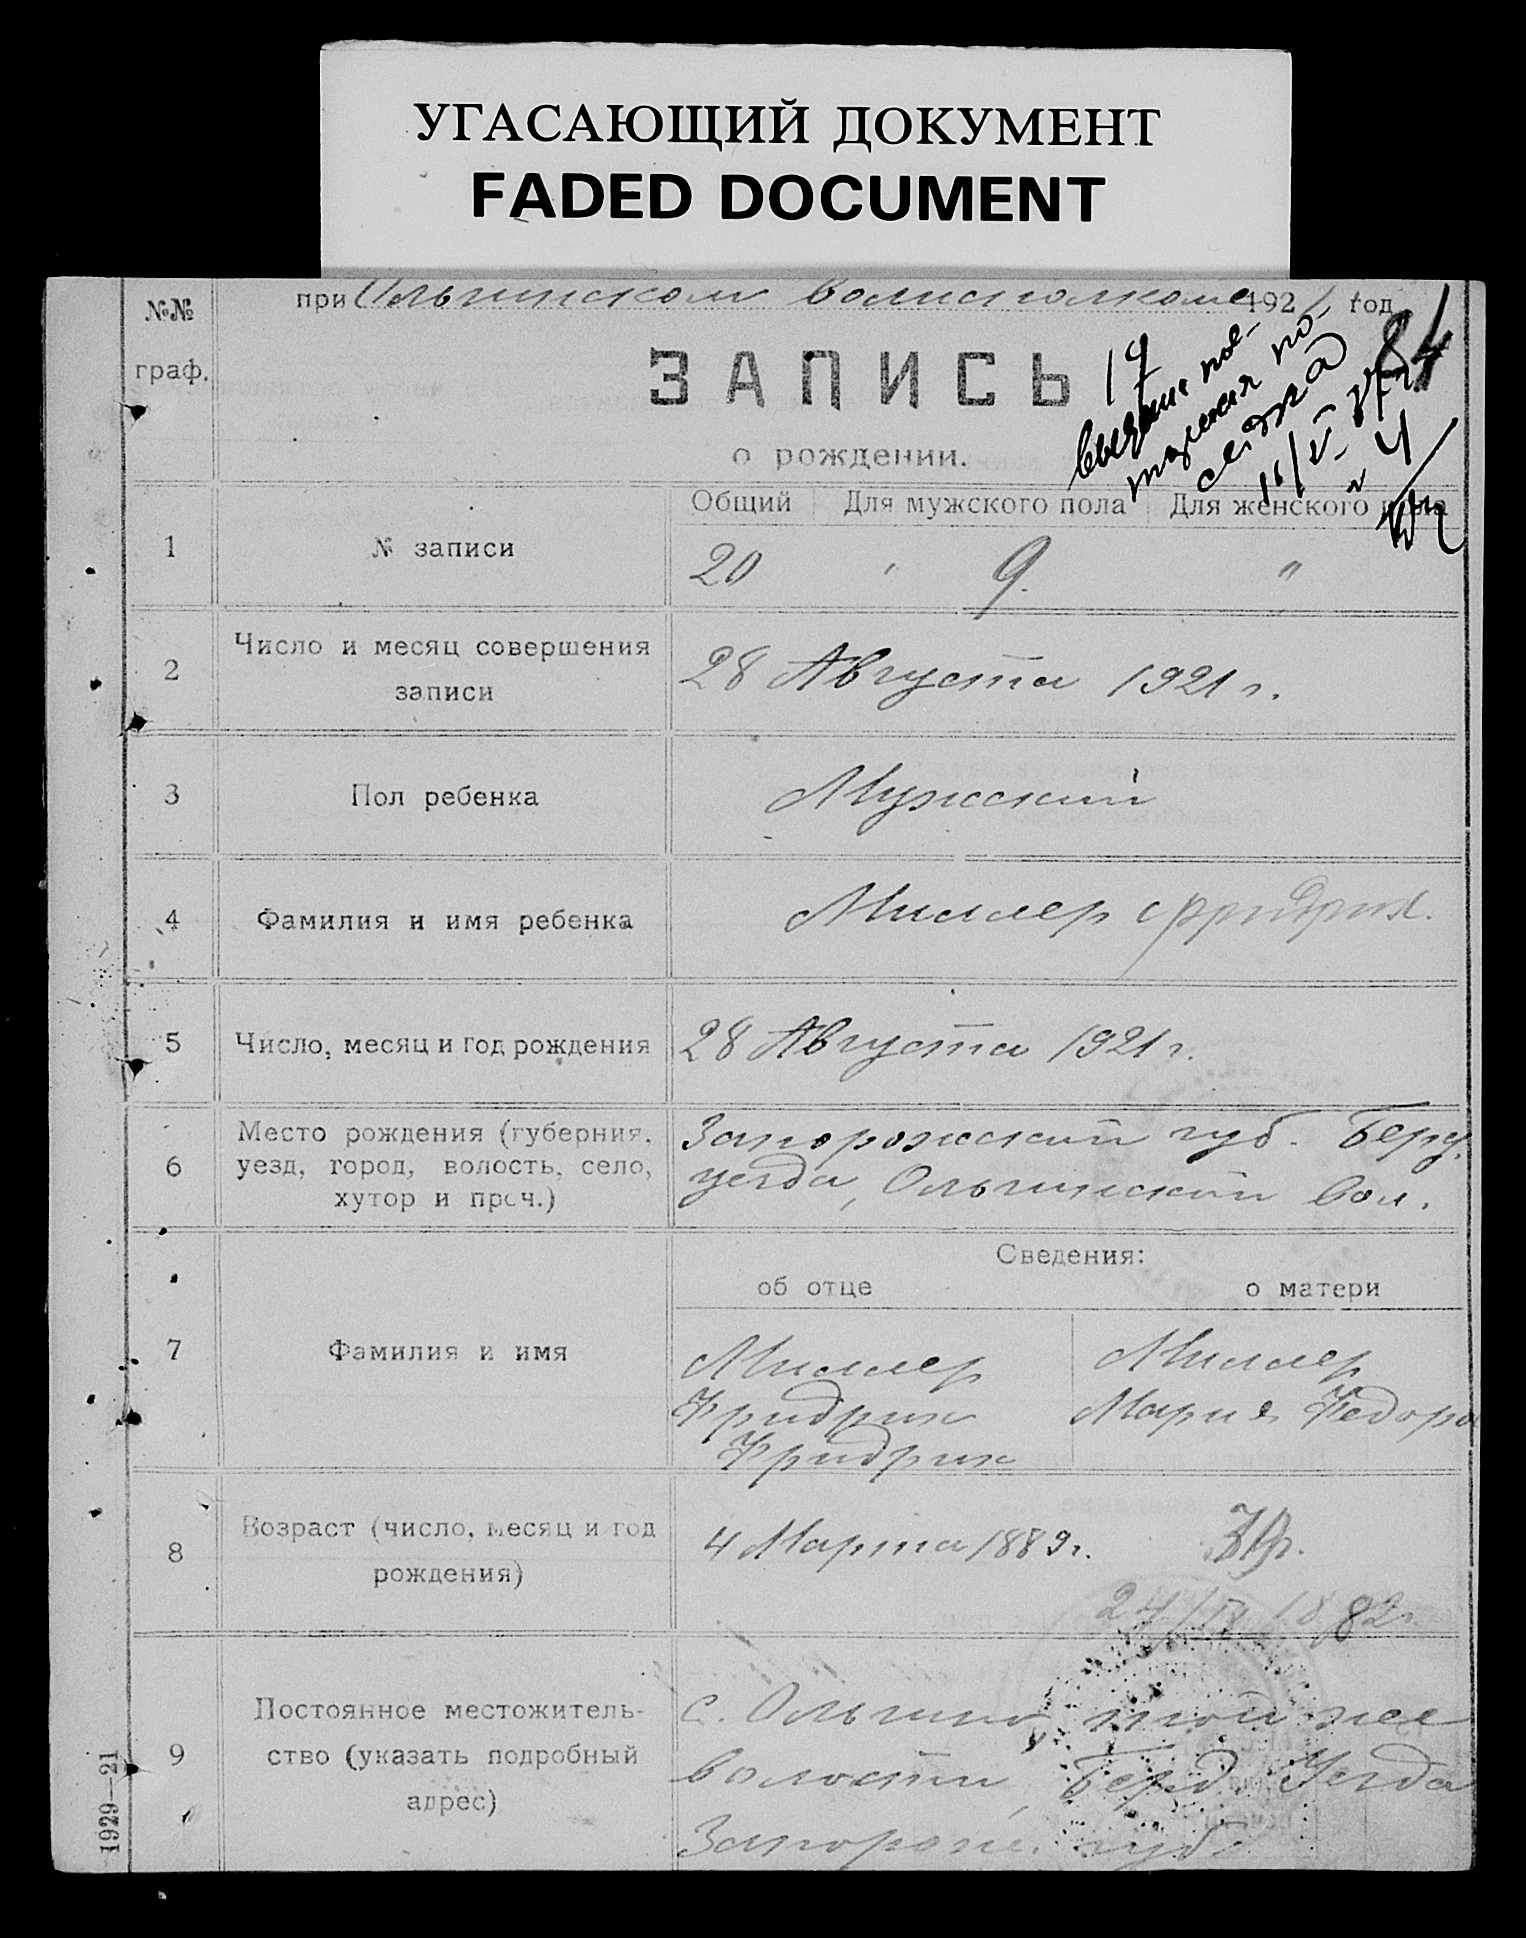 УГАСАЮЩИЙ ДОКУМЕНТ
FADED DOCUMENT
№№ граф.
при Ольгинском волисполкоме 1921 год
84
ЗАПИСЬ
о рождении.
19
16/VI
Общий Для мужского пола Для женского пола
1 № записи 20 9. "
2 Число и месяц совершения
записи
28 Августа 1921 г.
3 Пол ребенка Мужской
4 Фамилия и имя ребенка Миллер Фридрих.
5 Число, месяц и год рождения 28 Августа 1921 г.
6 Место рождения (губерния,
уезд, город, волость, село,
хутор и проч.)
Запорожской губ. Берд.
уезда, Ольгинской вол.
Сведения:
об отце о матери
7 Фамилия и имя
Миллер
Фридрих
Фридрих
Миллер
Мария Федоро
8 Возраст (число, месяц и год
рождения)
4 Марта 1889 г.
24/IV 1882 г.
9 Постоянное местожитель-
ство (указать подробный
адрес)
с. Ольгино, той же
волости, Берд. Уезда
Запорож. губ.
1929—21